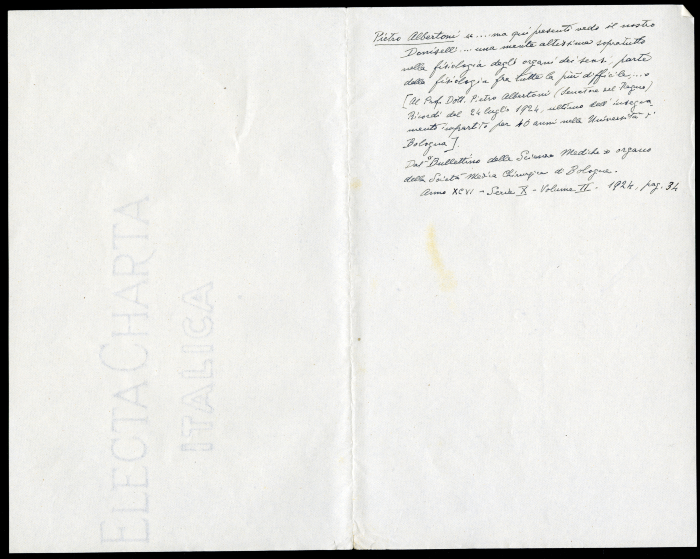 Pietro Albertoni «....ma qui presenti vedo il nostro
Doniselli.... una mente altissima sopratutto
nella fisiologia degli organi dei sensi, parte
della fisiologia fra tutte la più difficile....»
[Al Prof. Dott. Pietro Albertoni (Senatore del Regno)
Ricordi del 24 luglio 1924, ultimo dell'insegna
mento impartito per 40 anni nella Università di
Bologna].
Dal "Bullettino delle Scienze Mediche" organo
della Società Medica Chirurgica di Bologna.
Anno XCVI - Serie X - Volume II - 1924, pag. 34
ELECTA CHARTA
ITALICA